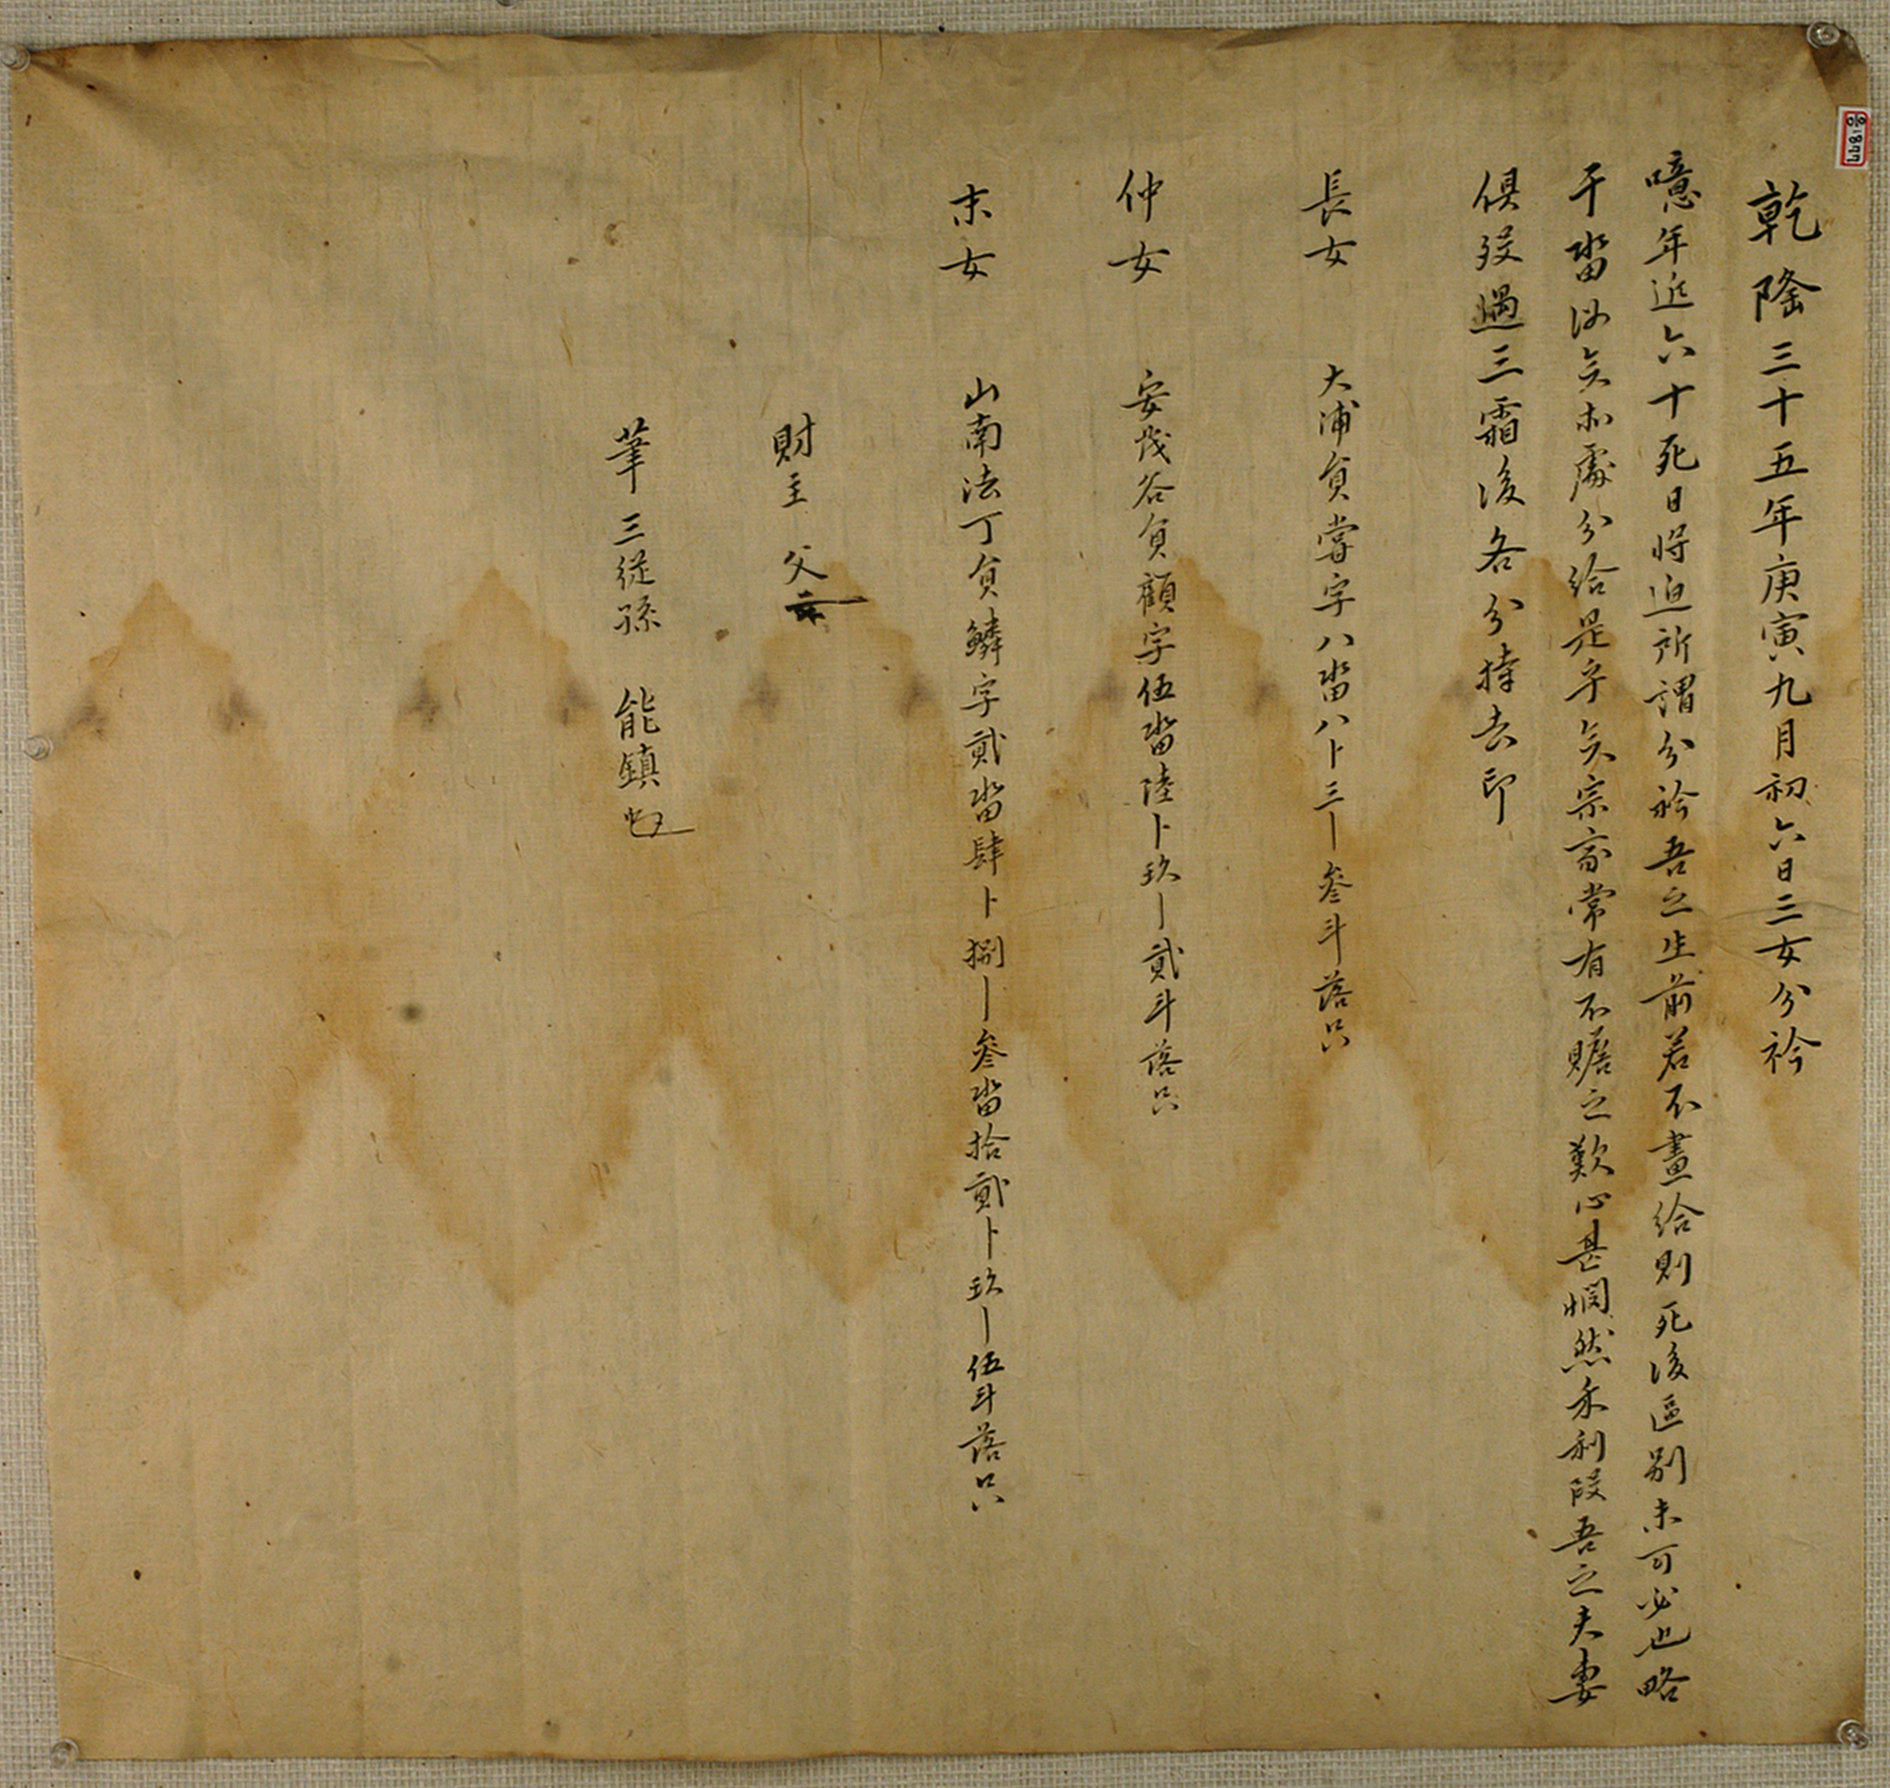 乾隆三十五年庚寅九月初六日三女分衿
噫年近六十死日將迫所謂分衿吾之生前若不畫給則死後區別未可必也略
干畓汝矣等處分給是乎矣宗家常有不贍之歎心甚憫然乎利段吾之夫妻
俱歿過三霜後各分持去印
長女 大浦員當字八畓八卜三丨參斗落只
仲女 安茂谷員顧字伍畓陸卜玖丨貳斗落只
末女 山南法丁員鱗字貳畓肆卜捌丨參畓拾貳卜玖丨伍斗落只
財主 父
筆 三從孫 能鎭
8877